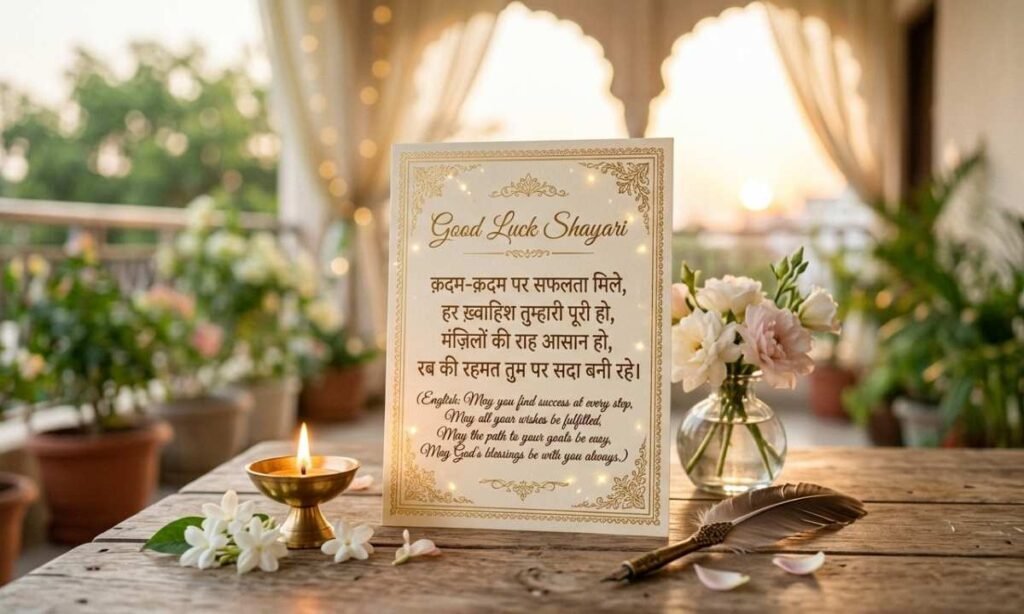 Good Luck Shayari
क़दम-क़दम पर सफलता मिले,
हर ख़्वाहिश तुम्हारी पूरी हो,
मंज़िलों की राह आसान हो,
रब की रहमत तुम पर सदा बनी रहे।
(English: May you find success at every step,
May all your wishes be fulfilled,
May the path to your goals be easy,
May God's blessings be with you always.)